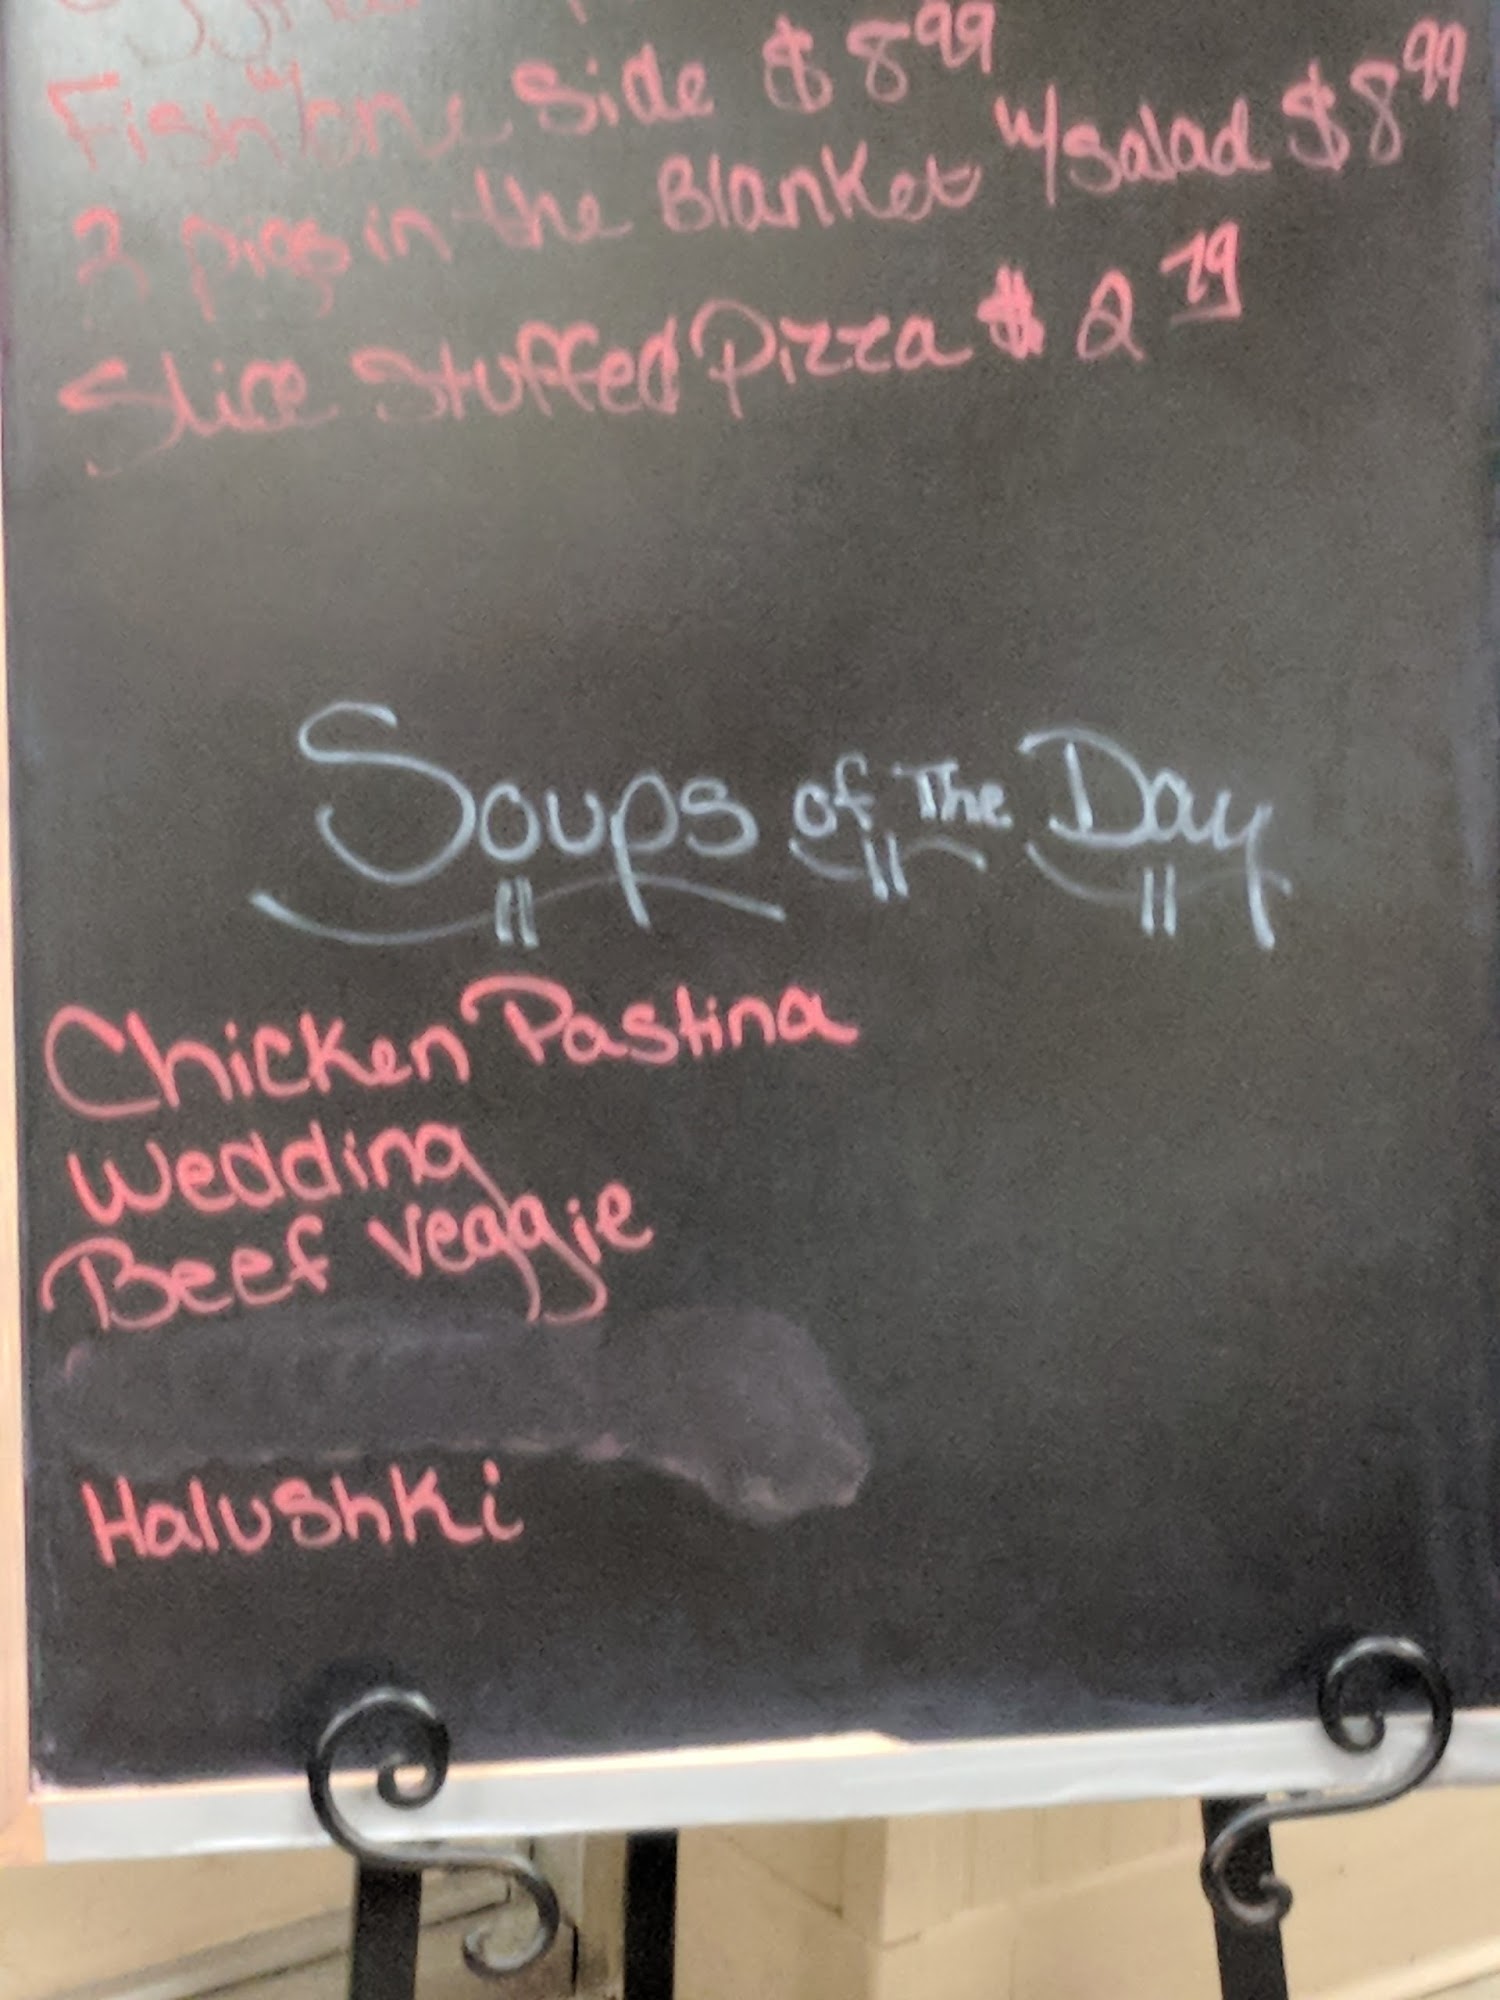 Fish w/ one side $8.99
2 pigs in the Blanket w/salad $8.99
Slice Stuffed Pizza $2.79
Soups of The Day
Chicken Pastina
Wedding
Beef Veggie
Halushki